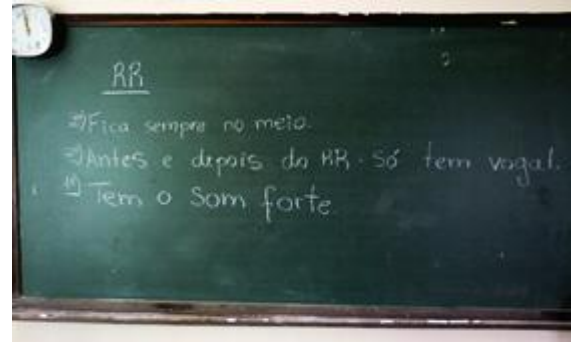 RR
2º) Fica sempre no meio.
3º) Antes e depois do RR. Só tem vogal.
1º) Tem o Som forte.